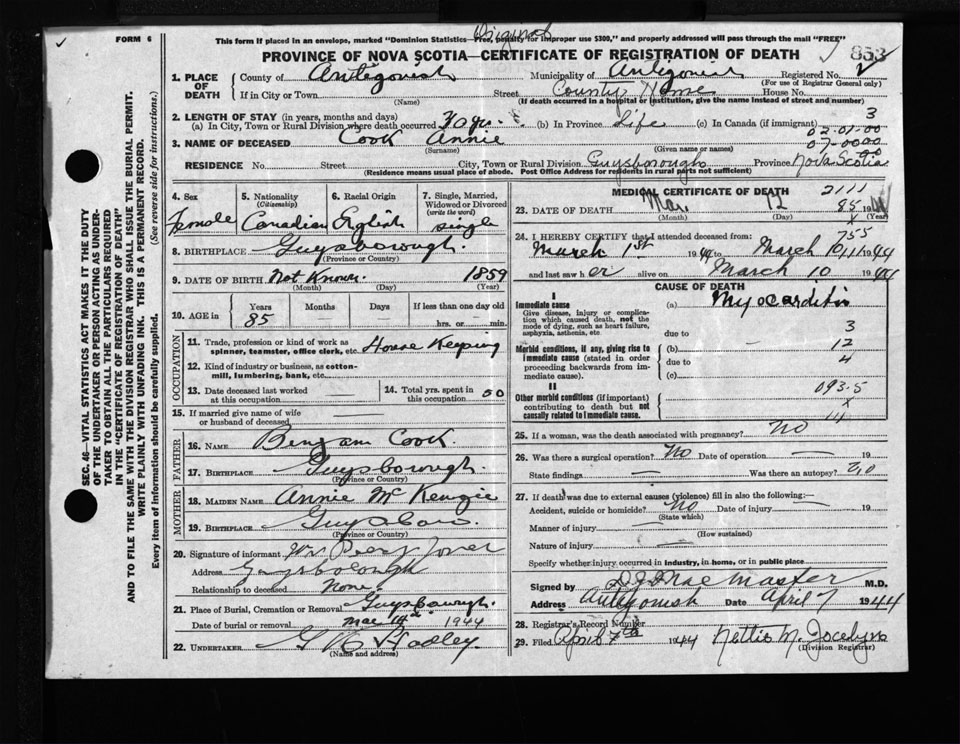 Original
FORM 6 This form if placed in an envelope, marked "Dominion Statistics—Free, penalty for improper use $300," and properly addressed will pass through the mail "FREE"
PROVINCE OF NOVA SCOTIA—CERTIFICATE OF REGISTRATION OF DEATH 853
1. PLACE OF DEATH County of Antigonish Municipality of Antigonish Registered No. 2
(For use of Registrar General only)
If in City or Town Street County Home House No.
(Name) (If death occurred in a hospital or institution, give the name instead of street and number)
2. LENGTH OF STAY (in years, months and days) 3
(a) In City, Town or Rural Division where death occurred (b) In Province Life (c) In Canada (if immigrant) 02-01-00
3. NAME OF DECEASED Cook Annie 07-0000
(Surname) (Given name or names) 90
RESIDENCE No. Street City, Town or Rural Division Guysborough Province Nova Scotia
(Residence means usual place of abode. Post Office Address for residents in rural parts not sufficient)
4. Sex Female
5. Nationality (Citizenship) Canadian
6. Racial Origin English
7. Single, Married, Widowed or Divorced (write the word) single
8. BIRTHPLACE Guysborough.
(Province or Country)
9. DATE OF BIRTH Not Known 1859
(Month) (Day) (Year)
10. AGE in Years Months Days If less than one day old
85 — — hrs. or min.
OCCUPATION
11. Trade, profession or kind of work as spinner, teamster, office clerk, etc. House Keeping
12. Kind of industry or business, as cotton-mill, lumbering, bank, etc.
13. Date deceased last worked at this occupation
14. Total yrs. spent in this occupation 50
15. If married give name of wife or husband of deceased
FATHER
16. NAME Benjam Cook.
17. BIRTHPLACE Guysborough.
(Province or Country)
MOTHER
18. MAIDEN NAME Annie McKenzie
19. BIRTHPLACE Guysboro.
(Province or Country)
20. Signature of informant Mrs Percy Jones
Address Guysborough
Relationship to deceased None.
21. Place of Burial, Cremation or Removal Guysborough.
Date of burial or removal Mar 14th 1944
22. UNDERTAKER Hadley.
(Name and address)
MEDICAL CERTIFICATE OF DEATH 2111
23. DATE OF DEATH Mar. 12 85 1944
(Month) (Day) (Year)
24. I HEREBY CERTIFY that I attended deceased from: 755
March 1st 1944 to March 10/11/1944
and last saw her alive on March 10 1944
CAUSE OF DEATH
I
Immediate cause
Give disease, injury or complication which caused death, not the mode of dying, such as heart failure, asphyxia, asthenia, etc.
(a) Myocarditis
due to 3
Morbid conditions, if any, giving rise to immediate cause (stated in order proceeding backwards from immediate cause).
(b) — 12
due to 4
(c)
II
Other morbid conditions (if important) contributing to death but not causally related to immediate cause.
093.5
X
111
25. If a woman, was the death associated with pregnancy? No
26. Was there a surgical operation? No Date of operation — 19
State findings — Was there an autopsy? No
27. If death was due to external causes (violence) fill in also the following:—
Accident, suicide or homicide? No Date of injury — 19
(State which)
Manner of injury —
(How sustained)
Nature of injury —
Specify whether injury occurred in industry, in home, or in public place
Signed by MacMaster M.D.
Address Antigonish Date April 7 1944
28. Registrar's Record Number
29. Filed April 7th 1944 Nettie M. Jocelyn
(Division Registrar)
SEC. 46—VITAL STATISTICS ACT MAKES IT THE DUTY
OF THE UNDERTAKER OR PERSON ACTING AS UNDER-
TAKER TO OBTAIN ALL THE PARTICULARS REQUIRED
IN THE "CERTIFICATE OF REGISTRATION OF DEATH"
AND TO FILE THE SAME WITH THE DIVISION REGISTRAR WHO SHALL ISSUE THE BURIAL PERMIT.
WRITE PLAINLY WITH UNFADING INK. THIS IS A PERMANENT RECORD.
Every item of information should be carefully supplied. (See reverse side for instructions.)